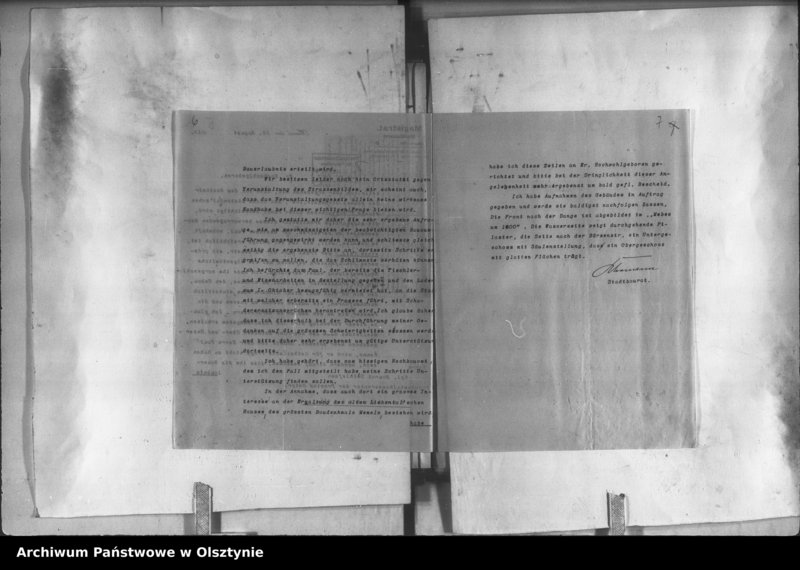 6
Bauerlaubnis erteilt wird.
Wir besitzen leider noch kein Ortsstatut gegen
Verunstaltung des Strassenbildes, mir scheint auch,
dass das Verunstaltungsgesetz allein keine wirksame
Handhabe bei dieser wichtigen Frage bieten wird.
Ich gestatte mir daher die sehr ergebene Anfra-
ge, wie am zweckmässigsten der beabsichtigten Bauaus-
führung entgegengewirkt werden kann und schliesse gleich
zeitig die ergebenste Bitte an, dortseits Schritte er-
greifen zu wollen, die das Schlimmste verhüten können
Ich befürchte dass Paul, der bereits die Tischler-
und Eisenarbeiten in Bestellung gegeben und den Laden
zum 1. Oktober bezugsfähig vermietet hat,
mit welcher er bereits ein Prozess führt, mit Scha-
denersatzansprüchen herantreten wird. Ich glaube daher
dass ich dieserhalb bei der Durchführung meiner Ge-
danken auf die grössten Schwierigkeiten stossen werde
und bitte daher sehr ergebenst um gütige Unterstützung
dortseits.
Ich habe gehört, dass vom hiesigen Hochbauamt,
dem ich den Fall mitgeteilt habe meine Schritte Un-
terstützung finden sollen.
In der Annahme, dass auch dort ein grosses In-
teresse an der Erhaltung des alten
Hauses des grössten Baudenkmals Memels bestehen wird
habe
7
habe ich diese Zeilen an Ew. Hochwohlgeboren ge-
richtet und bitte bei der Dringlichkeit dieser An-
gelegenheit sehr ergebenst um bald gefl. Bescheid.
Ich habe Aufnahmen des Gebäudes in Auftrag
gegeben und werde sie baldigst nachfolgen lassen.
Die Front nach der Dange ist abgebildet in „Mebes
um 1800" . Die Wasserseite zeigt durchgehende Pi-
laster, die Seite nach der Börsenstr. ein Unterge-
schoss mit Säulenstellung, dass ein Obergeschoss
mit glatten Flächen trägt.
Stadtbaurat.
Archiwum Państwowe w Olsztynie